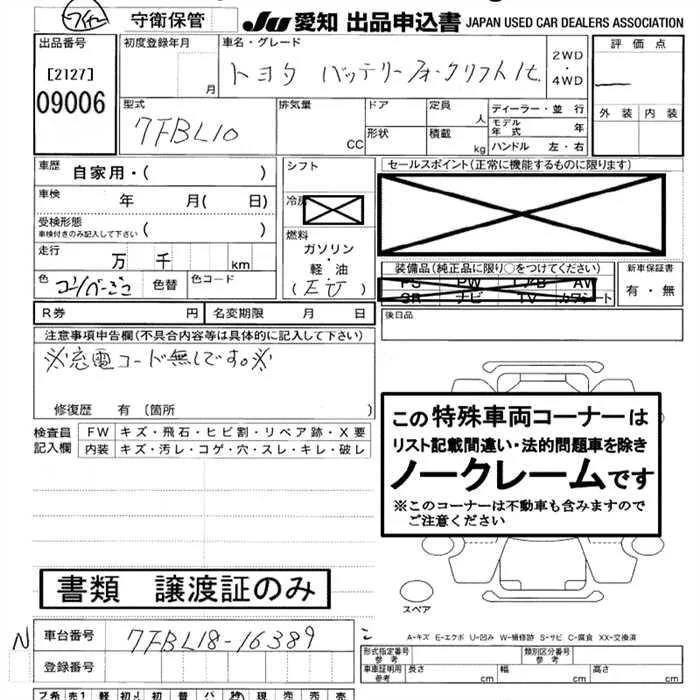 守衛保管 JU 愛知 出品申込書 JAPAN USED CAR DEALERS ASSOCIATION
出品番号 初度登録年月 車名・グレード 評価点
[2127] 月 トヨタ バッテリーフォークリフト1t. 2WD・4WD
09006 外装 内装
型式 排気量 ドア 定員 ディーラー・並行
7FBL10 人 モデル年式 年
CC 形状 積載 kg ハンドル 左・右
車歴 自家用・( ) シフト セールスポイント(正常に機能するものに限ります)
車検 年 月( 日)
受検形態 車検付きのみ記入して下さい ( ) 燃料
走行 万 千 km ガソリン・軽・油
装備品(純正品に限り○をつけてください) 新車保証書
色 色替 色コード PS PW AV 有・無
SR ナビ TV カワシート
R券 円 名変期限 月 日 後日品
注意事項申告欄(不具合内容等は具体的に記入して下さい)
※充電コード無しです。※
修復歴 有 〔箇所 〕
検査員記入欄 FW キズ・飛石・ヒビ割・リペア跡・X要
内装 キズ・汚レ・コゲ・穴・スレ・キレ・破レ
この特殊車両コーナーは
リスト記載間違い・法的問題車を除き
ノークレームです
※このコーナーは不動車も含みますので
ご注意ください
書類 譲渡証のみ
スペア
A-キズ E-エクボ U-凹み W-補修跡 S-サビ C-腐食 XX-交換済
N 車台番号 7FBL18-16389
型式指定番号 参考 類別区分番号 参考
登録番号 車証証明用 参考 長さ 幅 高さ